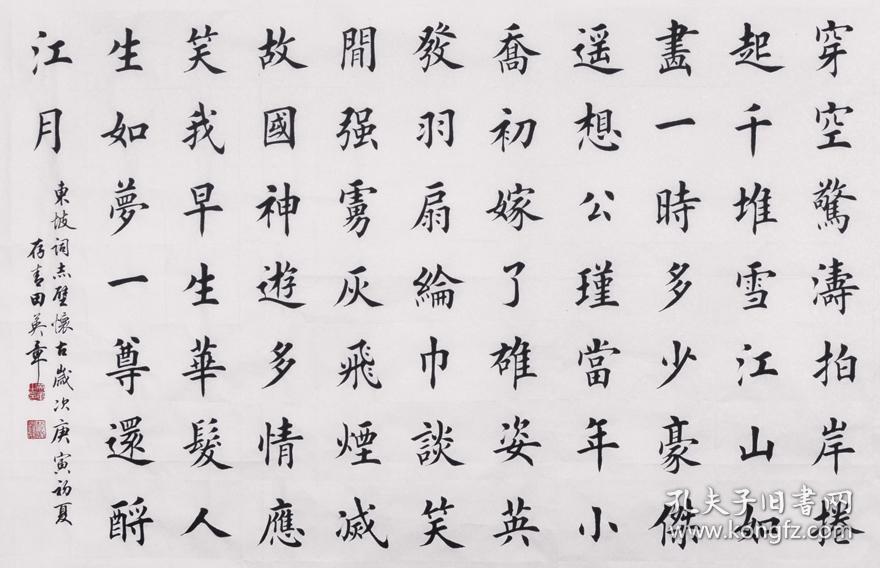 穿空驚濤拍岸捲
起千堆雪江山如
畫一時多少豪傑
遥想公瑾當年小
喬初嫁了雄姿英
發羽扇綸巾談笑
間强虜灰飛煙滅
故國神遊多情應
笑我早生華髮人
生如夢一尊還酹
江月
東坡詞赤壁懷古歲次庚寅初夏
存青田英章
孔夫子旧书网
www.kongfz.com